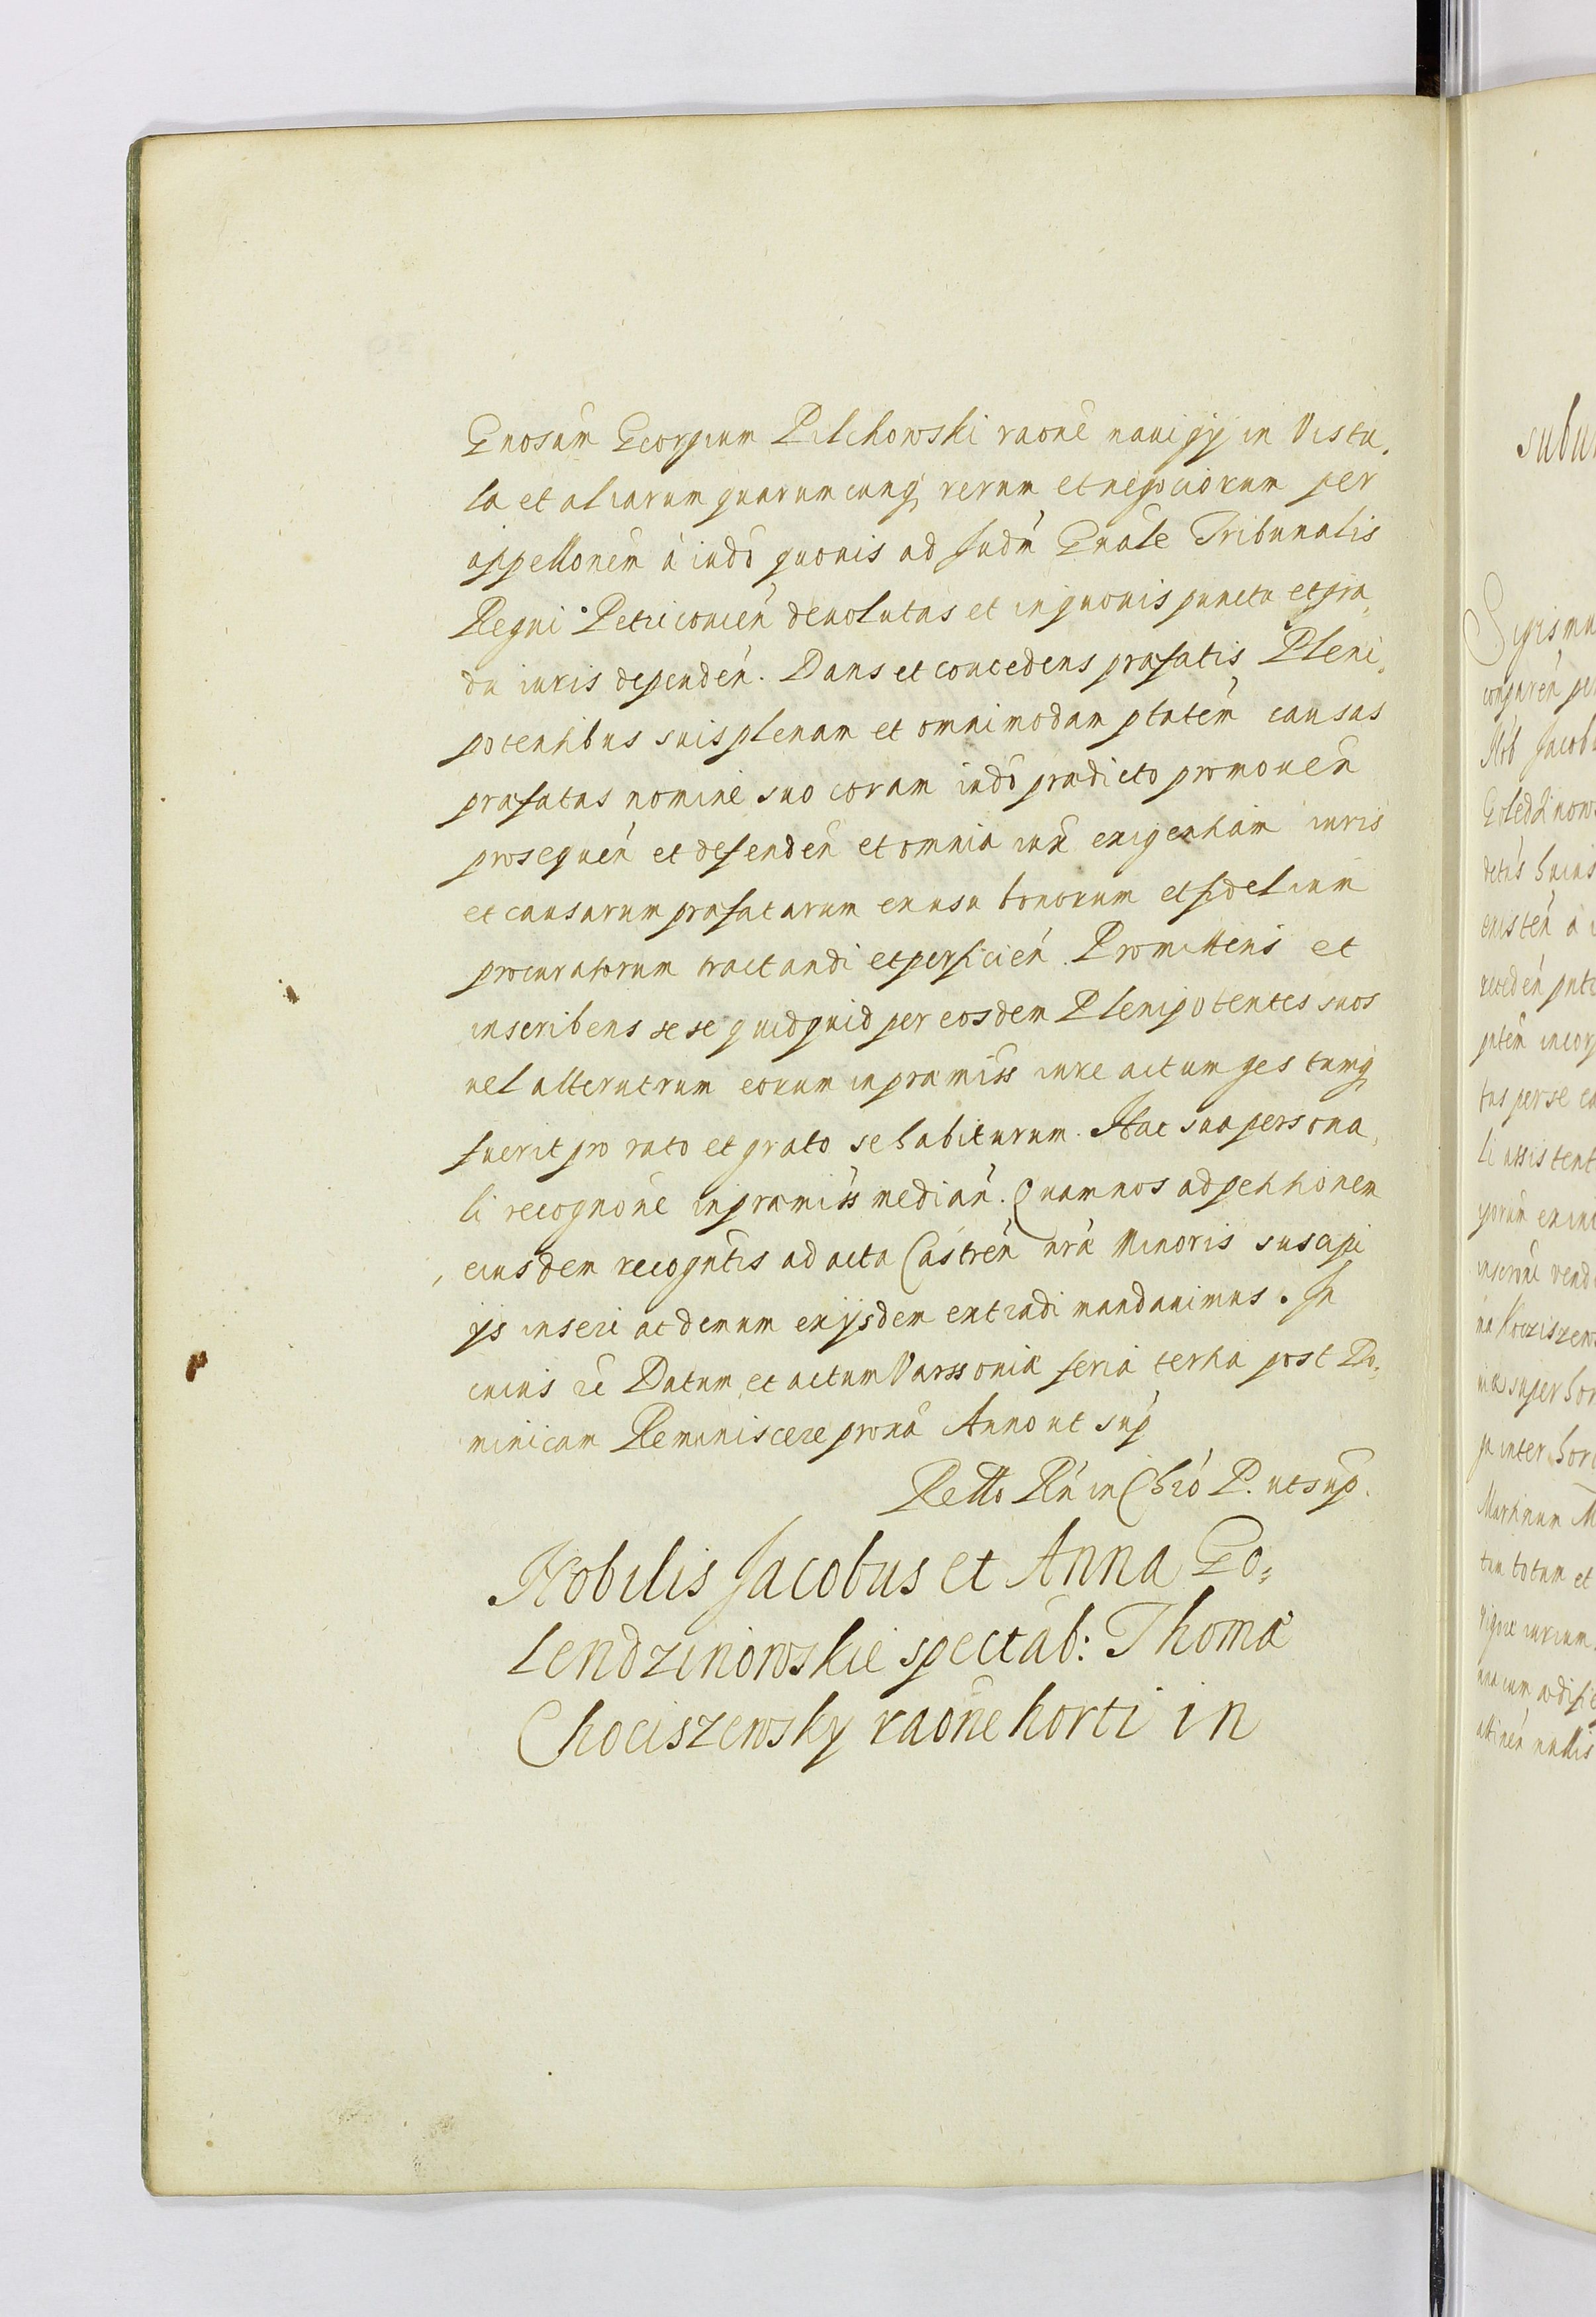 Gnosum Georgium Pilchowski raone nauigij in Vistu,
la et aliarum quarumcunq, rerum et negociorum per
appellonem à iudo quouis ad Judm Gnale Tribunalis
Regni Petriconien deuolutas et in quouis punctu et gra,
du iuris dependen. Dans et concedens præfatis Pleni,
potentibus suis plenam et omnimodam ptatem causas
præfatas nomine suo coram iudo prædicto promouen
prosequen et defenden et omnia iux exigentiam iuris
et causarum præfatarum ex usu bonorum et fidelium
procuratorum tractandi et perficien. Promittens et
inscribens sese quidquid per eosdem Plenipotentes suos
uel alterutrum eorum in præmiss iure actum gestumq,
fuerit pro rato et grato se habiturum. Hac sua persona,
li recognone in præmiss median. Quam nos ad petitionem
eiusdem recogntis ad acta Castren nra Minoris suscipi
ijs inseri ac demum ex ijsdem extradi mandauimus. In
cuius rei Datum et actum Varssouiæ feria tertia post Do,
minicam Reminiscere prona Anno ut sup
Retto Rn in Chro P. ut sup.
Nobilis Jacobus et Anna Go,
lendzinowskie spectab: Thomæ
Chociszewsky raone horti in
subur
Sigismu
Nob Jacob
Goledzinow
huius
existen à
reteden
tus per se
li assistent
inscrone vend
super hor
inter hor
Martinum M
tum totum et
uigore iurium
una cum ædifi
attinen nullis